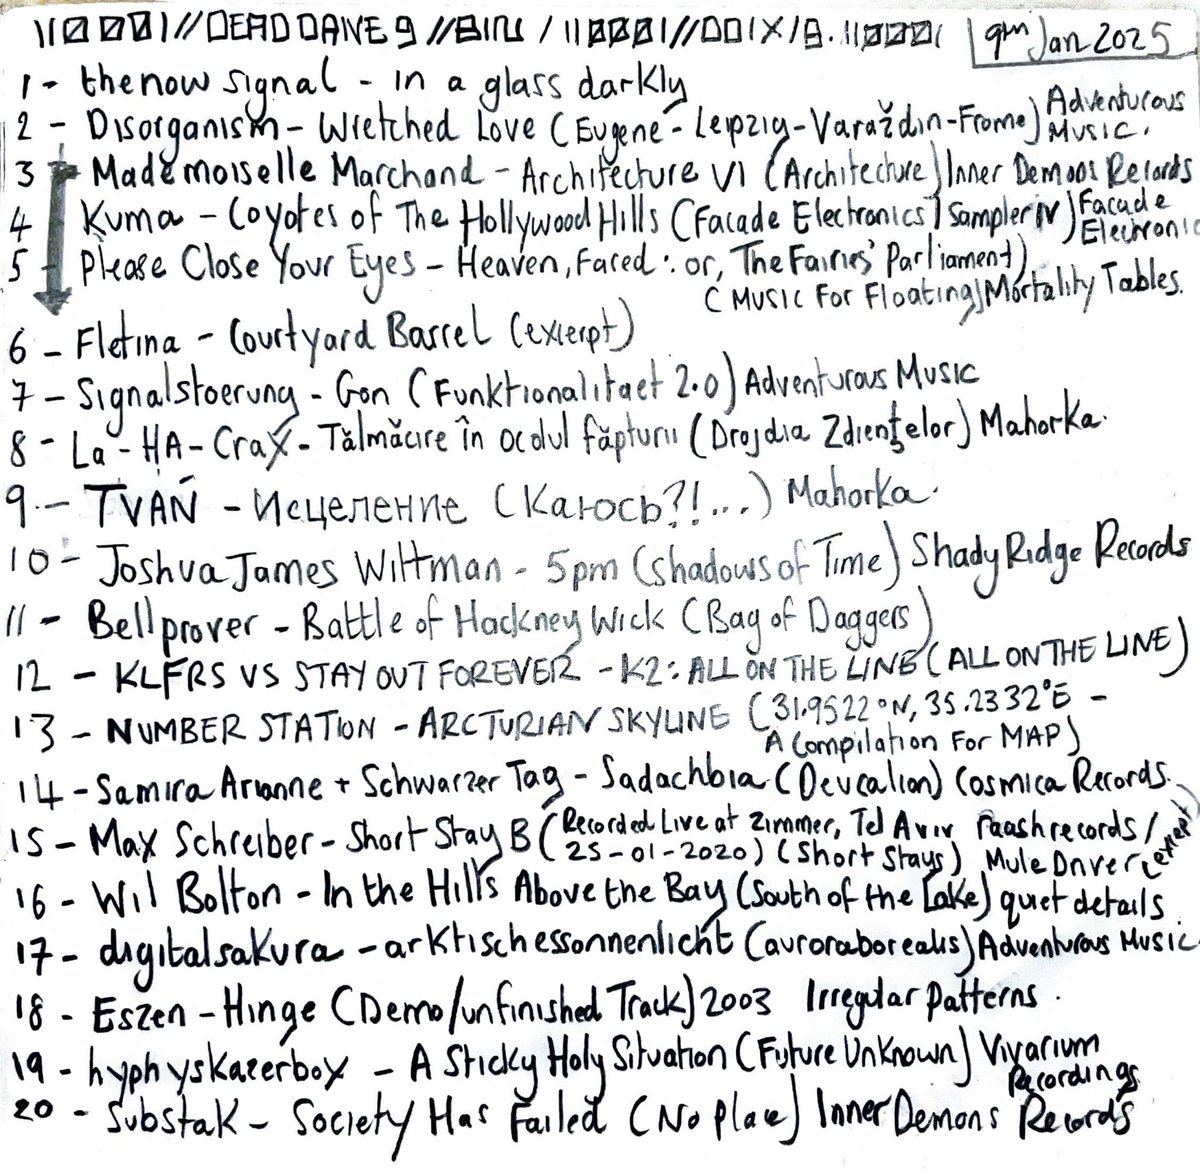 DEAD DANE 9 9pm Jan 2025
1 - thenow signal - in a glass darkly
2 - Disorganism - Wretched Love (Eugene - Leipzig - Varaždin - Frome) Adventurous Music.
3 - Mademoiselle Marchand - Architecture VI (Architecture) Inner Demons Records
4 Kuma - Coyotes of The Hollywood Hills (Facade Electronics Sampler IV) Facade Electronic
5 - Please Close Your Eyes - Heaven, Faced: or, The Fairies' Parliament)
(Music For Floating) Mortality Tables.
6 - Fletina - Courtyard Barrel (excerpt)
7 - Signalstoerung - Gon (Funktionalitaet 2.0) Adventurous Music
8 - La-HA-CraX - Tălmăcire în ocolul făpturii (Drojdia Zdienţelor) Mahorka.
9 - TVAŃ - Исцеление (Каюсь?!...) Mahorka.
10 - Joshua James Wittman - 5pm (Shadows of Time) Shady Ridge Records
11 - Bellprover - Battle of Hackney Wick (Bag of Daggers)
12 - KLFRS VS STAY OUT FOREVER - K2: ALL ON THE LINE (ALL ON THE LINE)
13 - NUMBER STATION - ARCTURIAN SKYLINE (31.9522°N, 35.2332°E -
A Compilation For MAP)
14 - Samira Arianne + Schwarzer Tag - Sadachbia (Deucalion) Cosmica Records.
15 - Max Schreiber - Short Stay B (Recorded Live at Zimmer, Tel Aviv raash records /
25-01-2020) (Short Stays) Mule Driver (excerpt)
16 - Wil Bolton - In the Hills Above the Bay (South of the Lake) quiet details.
17 - digitalsakura - arktischessonnenlicht (auroraborealis) Adventurous Music
18 - Eszen - Hinge (Demo/unfinished Track) 2003 Irregular Patterns.
19 - hyphyskazerbox - A Sticky Holy Situation (Future Unknown) Vivarium Recordings
20 - Substak - Society Has Failed (No Place) Inner Demons Records